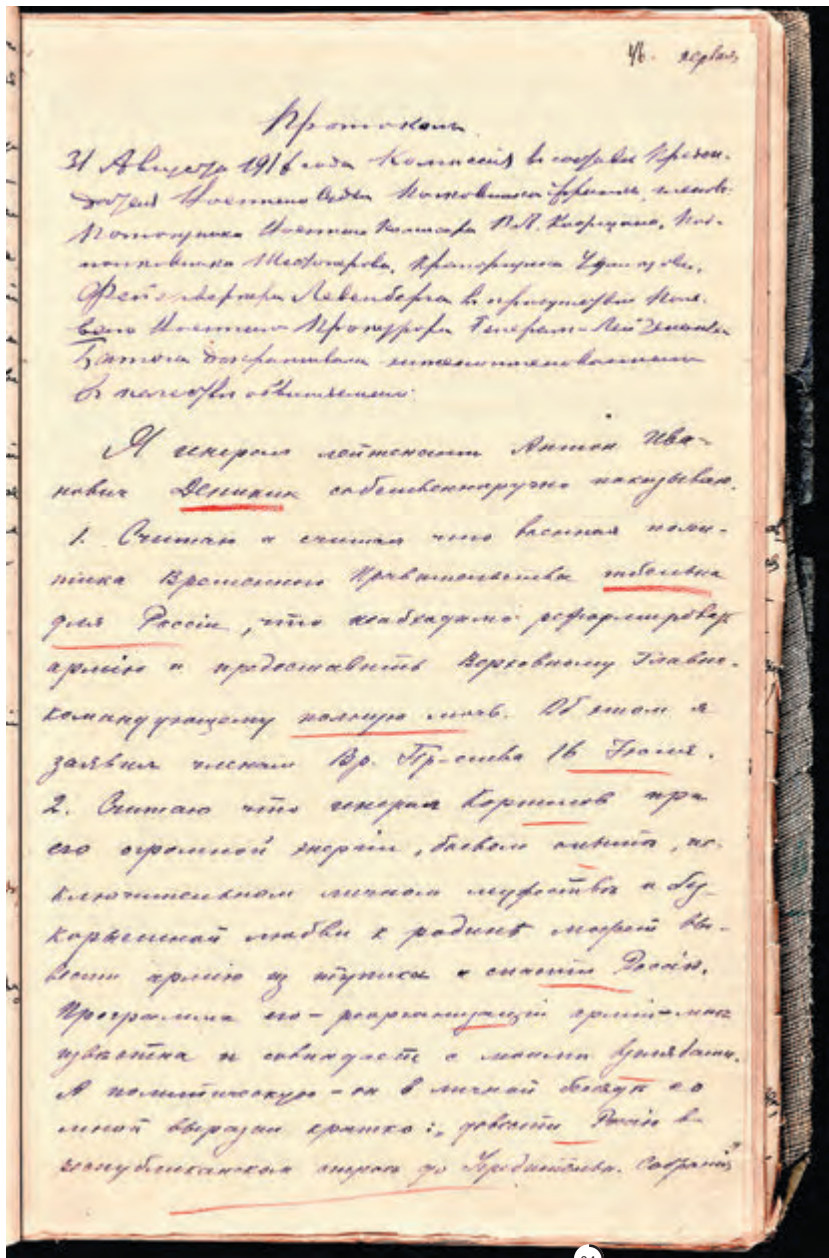 46. первая
Протоколъ
31 Августа 1917 года Комиссiя въ составѣ Предсѣ-
дателя Военнаго Суда Полковника членовъ:
Помощника Военнаго Комиссара Костицына, Под-
полковника Шестоперова, Прапорщика
Фейерверкера Левенберга въ присутствiи Поле-
вого Военнаго Прокурора Генерал-Лейтенанта
Батога допрашивала нижепоименованнаго
въ качествѣ обвиняемаго:
Я генерал лейтенант Антон Ива-
нович Деникин собственноручно показываю.
1. Считаю и считал что военная поли-
тика Временного Правительства гибельна
для Россiи, что необходимо реформировать
армiю и предоставить Верховному Главно-
командующему полную мочь. Об этом я
заявил членам Вр. Пр-ства 16 Iюля.
2. Считаю что генерал Корнилов при
его огромной энергiи, боевом опытѣ, ис-
ключительном личном мужествѣ и без-
корыстной любви к родинѣ может вы-
вести армiю из тупика и спасти Россiю.
Программа его – реорганизацiи армiи – мнѣ
извѣстна и совпадает с моими взглядами.
А политическую – он в личной бесѣдѣ со
мной выразил кратко: „довести Россiю в
республиканском до Учредительн. Собранiя"